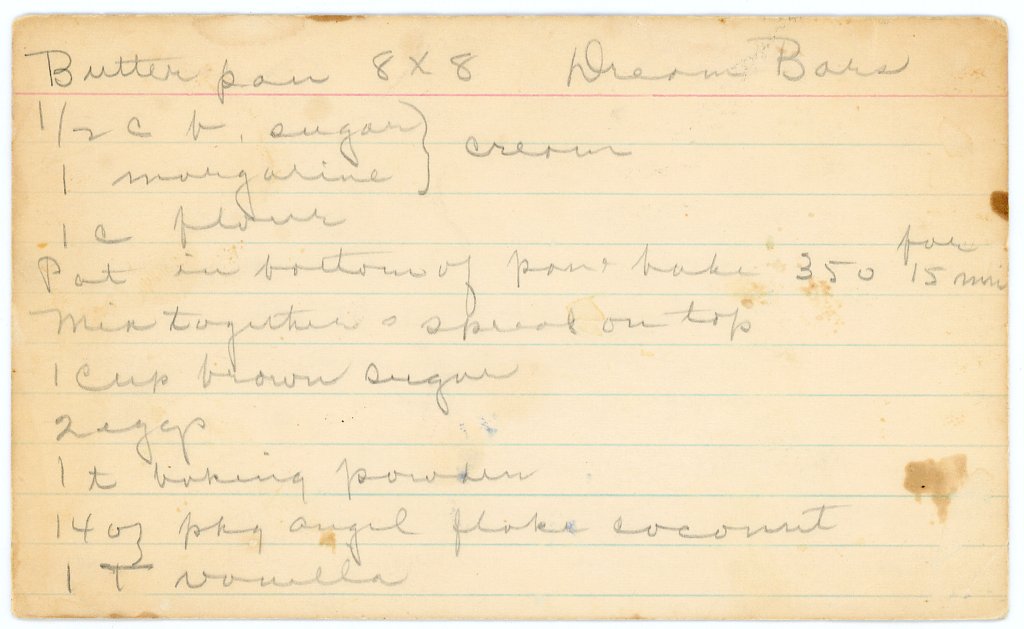 Butter pan 8 x 8 Dream Bars
1/2 c b. sugar } cream
1 margarine
1 c flour
Pat in bottom of pan & bake 350 for 15 min
Mix together & spread on top
1 cup brown sugar
2 eggs
1 t baking powder
14 oz pkg angel flake coconut
1 T vanilla